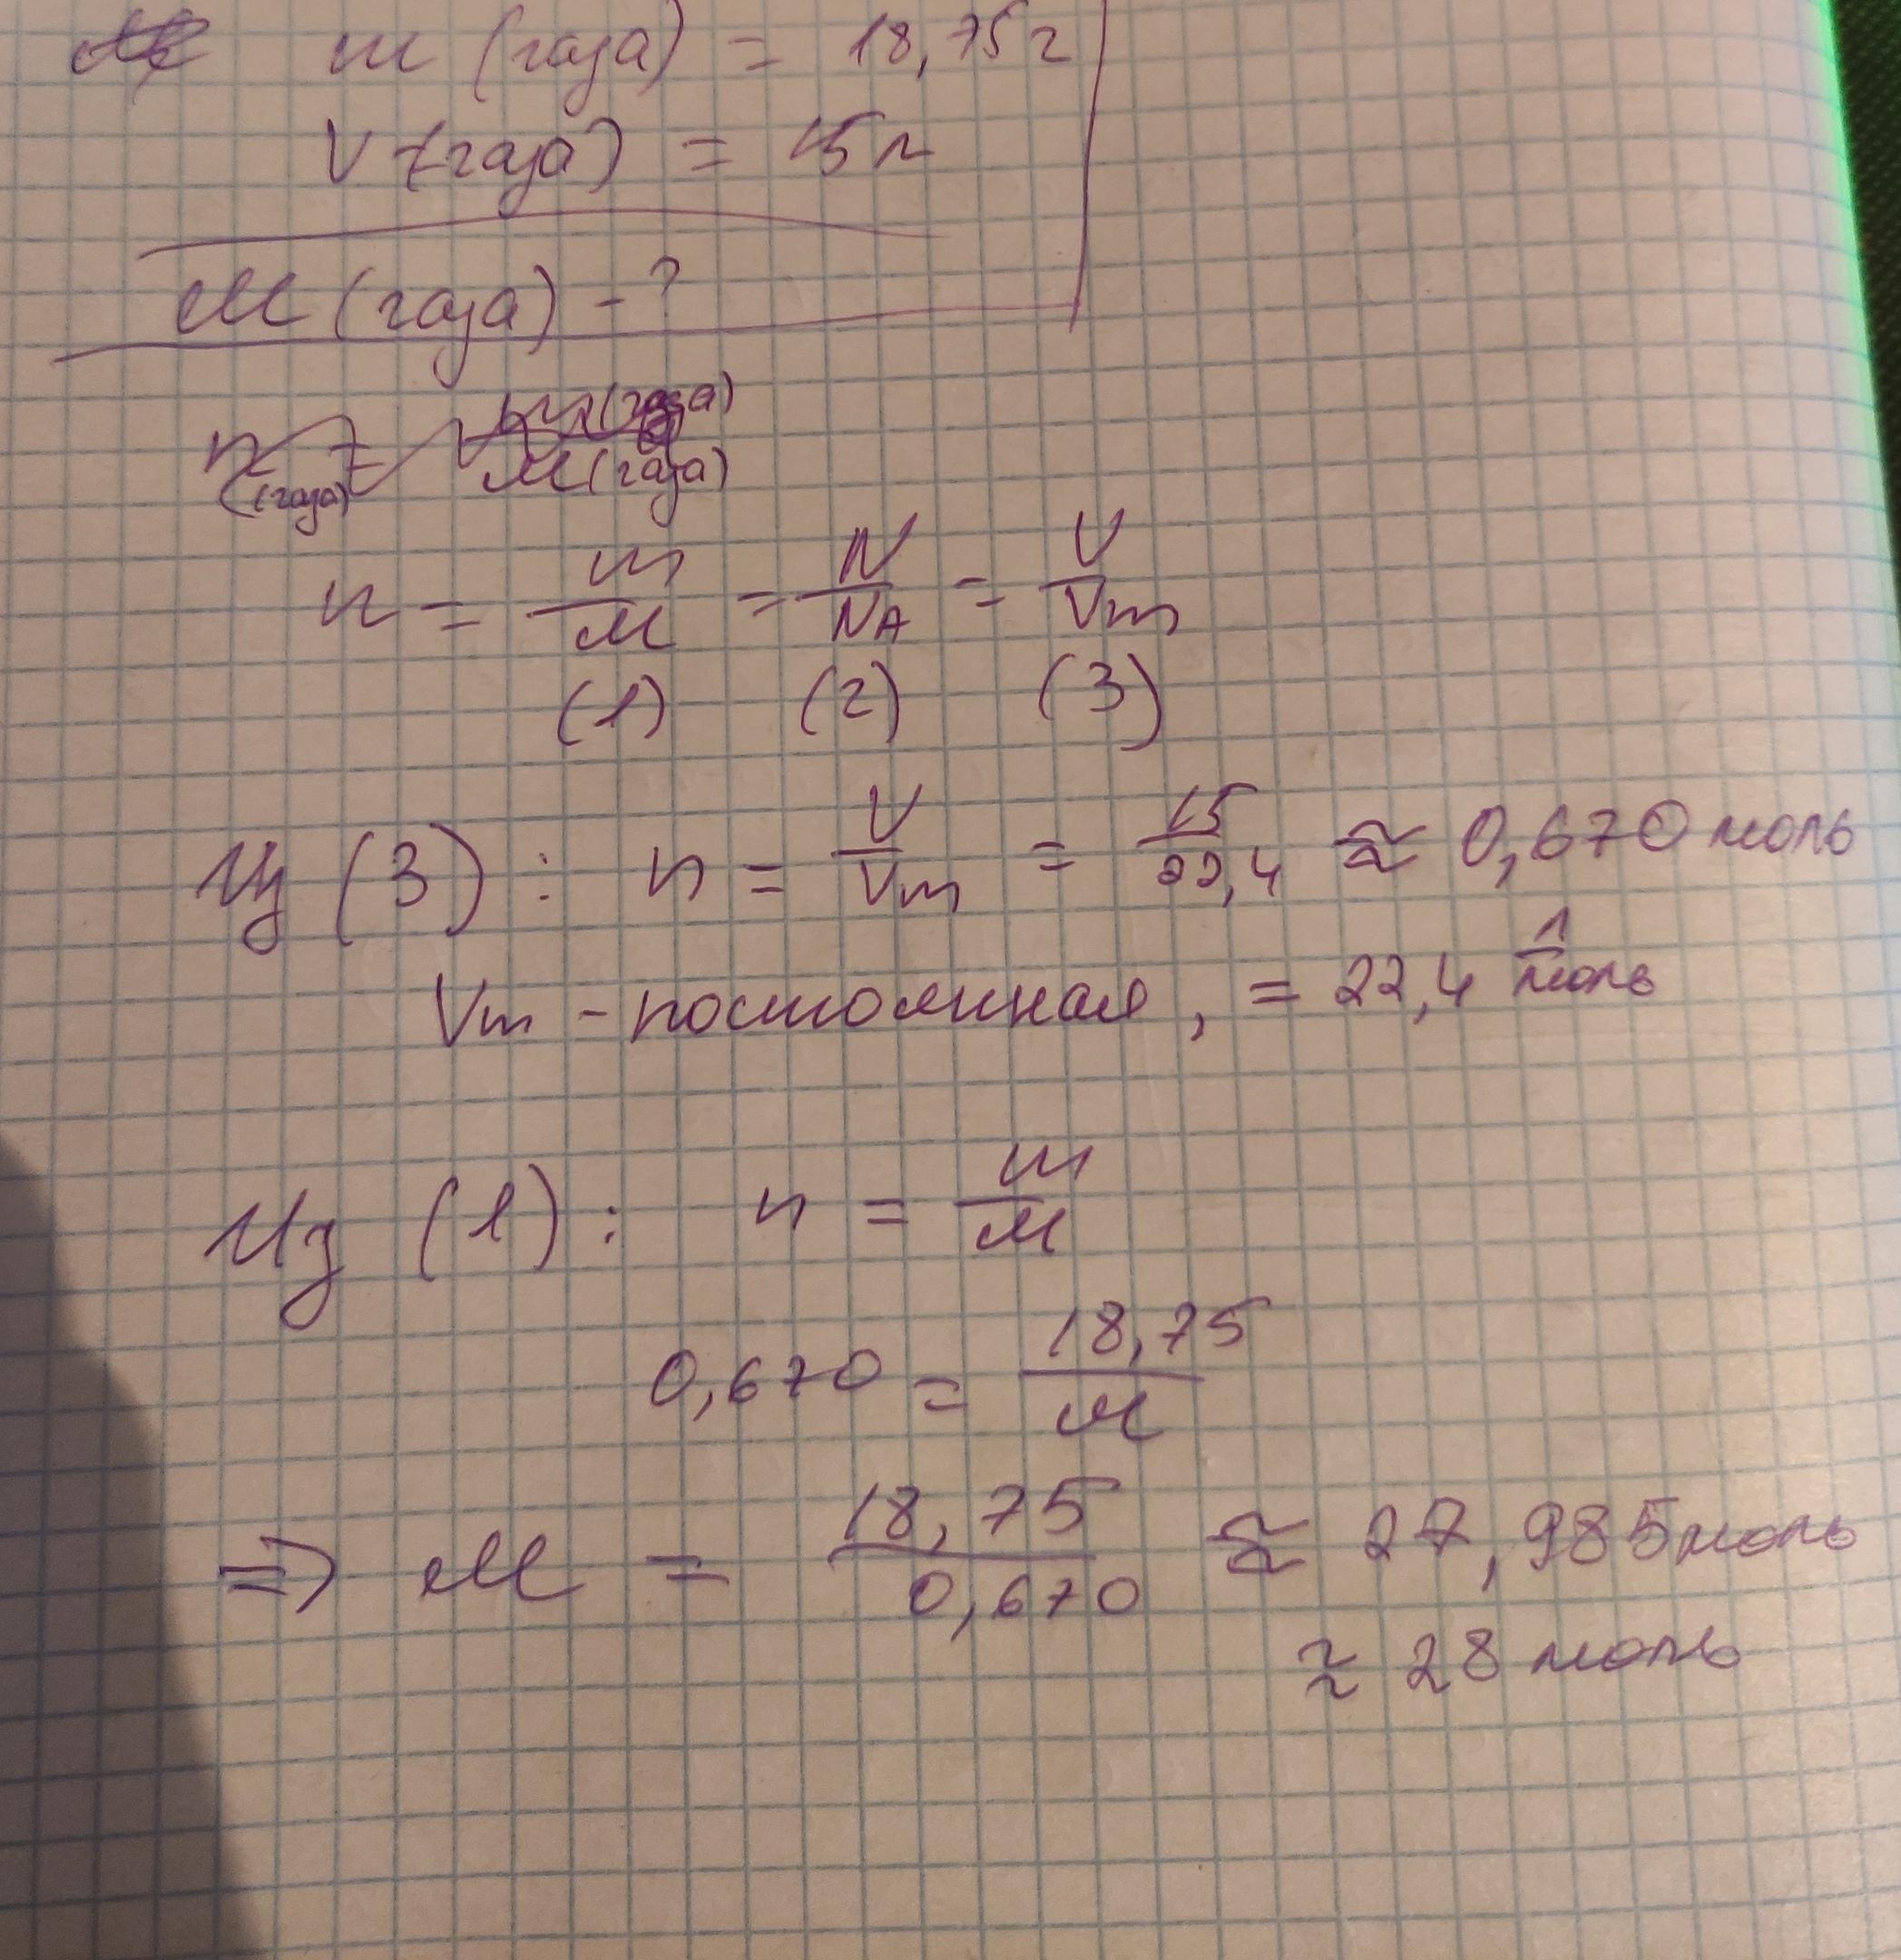 m (газа) = 18,75 г
V (газа) = 15 л
M (газа) - ?
n (газа) = m (газа) / M (газа)
n = m / M = N / NA = V / Vm
(1) (2) (3)
Из (3) : n = V / Vm = 15 / 22,4 ≈ 0,670 моль
Vm - постоянная, = 22,4 л / моль
Из (1) : n = m / M
0,670 = 18,75 / M
⇒ M = 18,75 / 0,670 ≈ 27,985 моль
≈ 28 моль